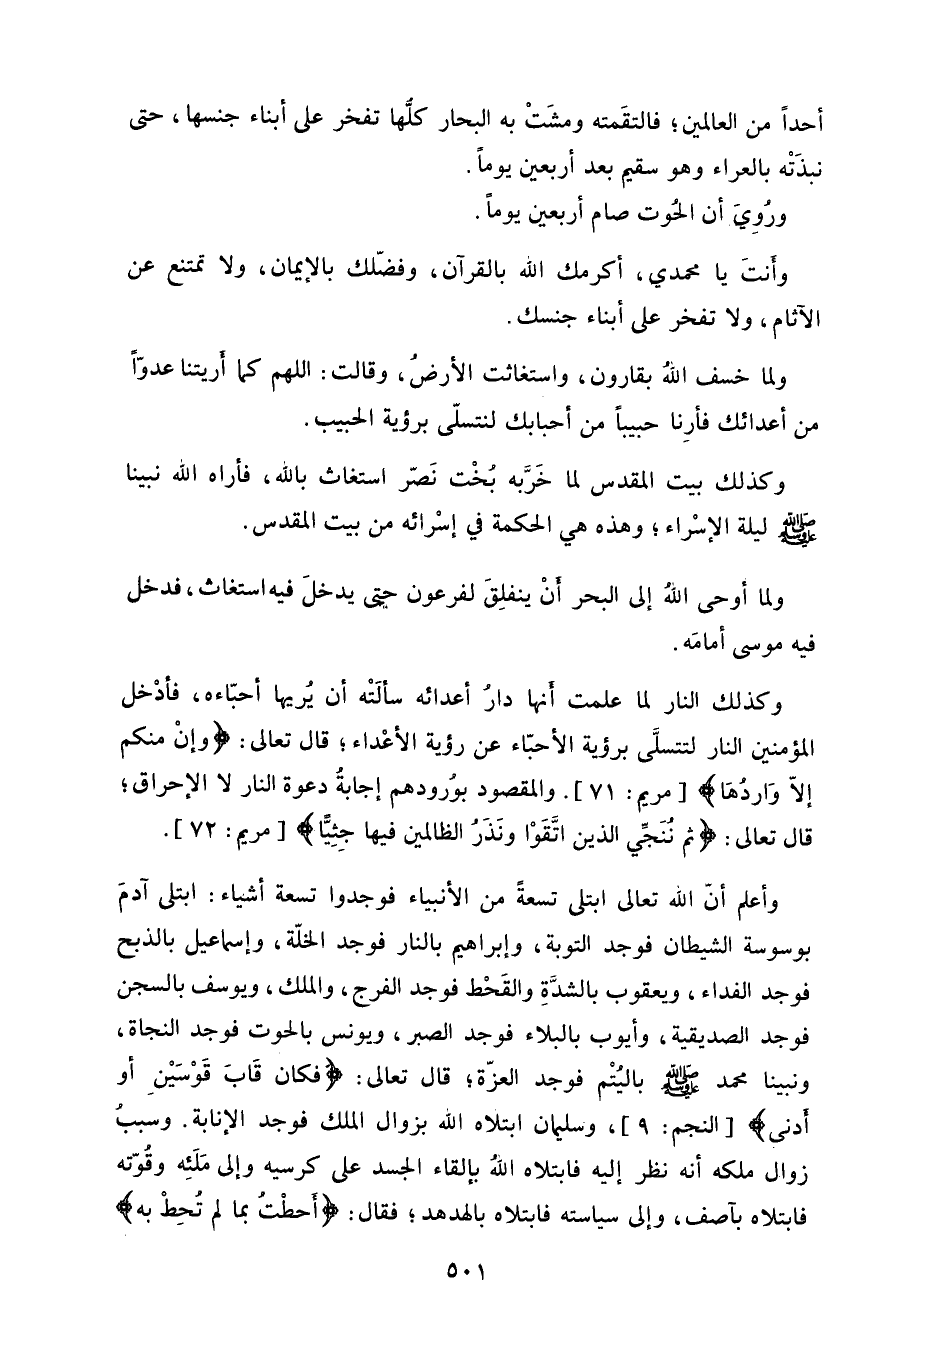 أحداً من العالمين؛ فالتقَمته ومشَتْ به البحار كلُّها تفخر على أبناء جنسها، حتى
نبذَتْه بالعراء وهو سقيم بعد أربعين يوماً.
ورُوِيَ أن الحُوت صام أربعين يوماً.
وأَنتَ يا محمدي، أكرمك الله بالقرآن، وفضّلك بالإيمان، ولا تمتنع عن
الآثام، ولا تفخر على أبناء جنسك.
ولما خسف اللهُ بقارون، واستغاثت الأرضُ، وقالت: اللهم كما أَريتنا عدوّاً
من أعدائك فأرِنا حبيباً من أحبابك لنتسلّى برؤية الحبيب.
وكذلك بيت المقدس لما خَرَّبه بُخْت نَصّر استغاث بالله، فأراه الله نبينا
ﷺ ليلة الإسْراء؛ وهذه هي الحكمة في إسْرائه من بيت المقدس.
ولما أوحى اللهُ إلى البحر أَنْ ينفلِقَ لفرعون حتى يدخلَ فيه استغاث، فدخل
فيه موسى أمامَه.
وكذلك النار لما علمت أَنها دارُ أعدائه سألَتْه أن يُريها أحبّاءه، فأدْخل
المؤمنين النار لتتسلَّى برؤية الأحبّاء عن رؤية الأعْداء؛ قال تعالى: ﴿وإنْ منكم
إلاّ وَاردُهَا﴾ [مريم: ٧١]. والمقصود بوُرودهم إجابةُ دعوة النار لا الإحراق؛
قال تعالى: ﴿ثم نُنَجِّي الذين اتَّقَوْا ونَذَرُ الظالمين فيها جِثِيًّا﴾ [مريم: ٧٢].
وأعلم أنّ الله تعالى ابتلى تسعةً من الأنبياء فوجدوا تسعة أشياء: ابتلى آدمَ
بوسوسة الشيطان فوجد التوبة، وإبراهيم بالنار فوجد الخلّة، وإسماعيل بالذبح
فوجد الفداء، ويعقوب بالشدَّةِ والقَحْط فوجد الفرج، والملك، ويوسف بالسجن
فوجد الصديقية، وأيوب بالبلاء فوجد الصبر، ويونس بالحوت فوجد النجاة،
ونبينا محمد ﷺ باليُتْم فوجد العزّة؛ قال تعالى: ﴿فكان قَابَ قَوْسَيْنِ أو
أَدنى﴾ [النجم: ٩]، وسليمان ابتلاه الله بزوال الملك فوجد الإنابة. وسببُ
زوال ملكه أنه نظر إليه فابتلاه اللهُ بإلقاء الجسد على كرسيه وإلى مَلَئِه وقُوّته
فابتلاه بآصف، وإلى سياسته فابتلاه بالهدهد؛ فقال: ﴿أَحطْتُ بما لم تُحِطْ به﴾
٥٠١